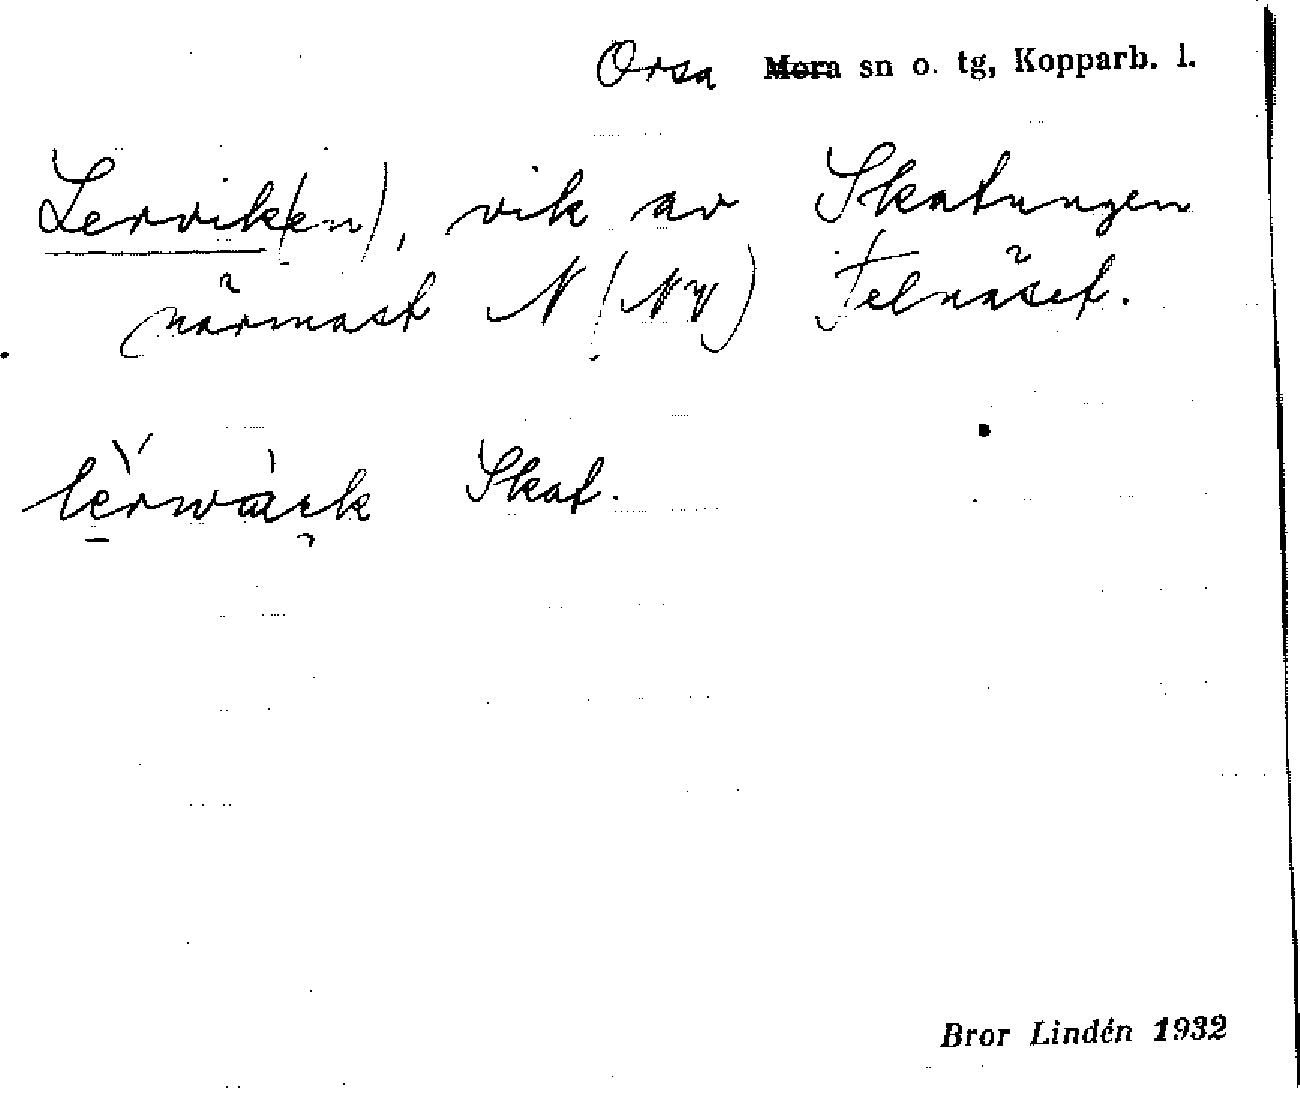 Orsa Mora sn o. tg, Kopparb. l.
Lervik(en), vik av Skatungen
närmast N (NV) Telnäset.
Skat.
Bror Lindén 1932